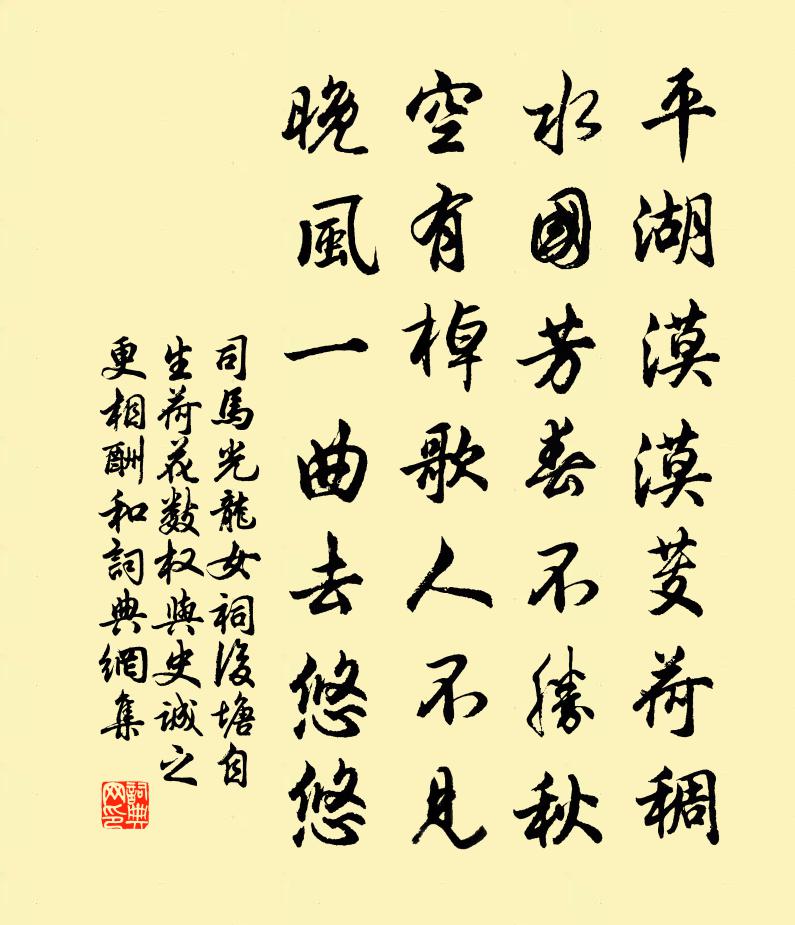 平湖漠漠芰荷稠
水國芳春不勝秋
空有棹歌人不見
晚風一曲去悠悠
司馬光龍女祠後塘自
生荷花數枝與史誠之
更相酬和詞典網集
詞典网印